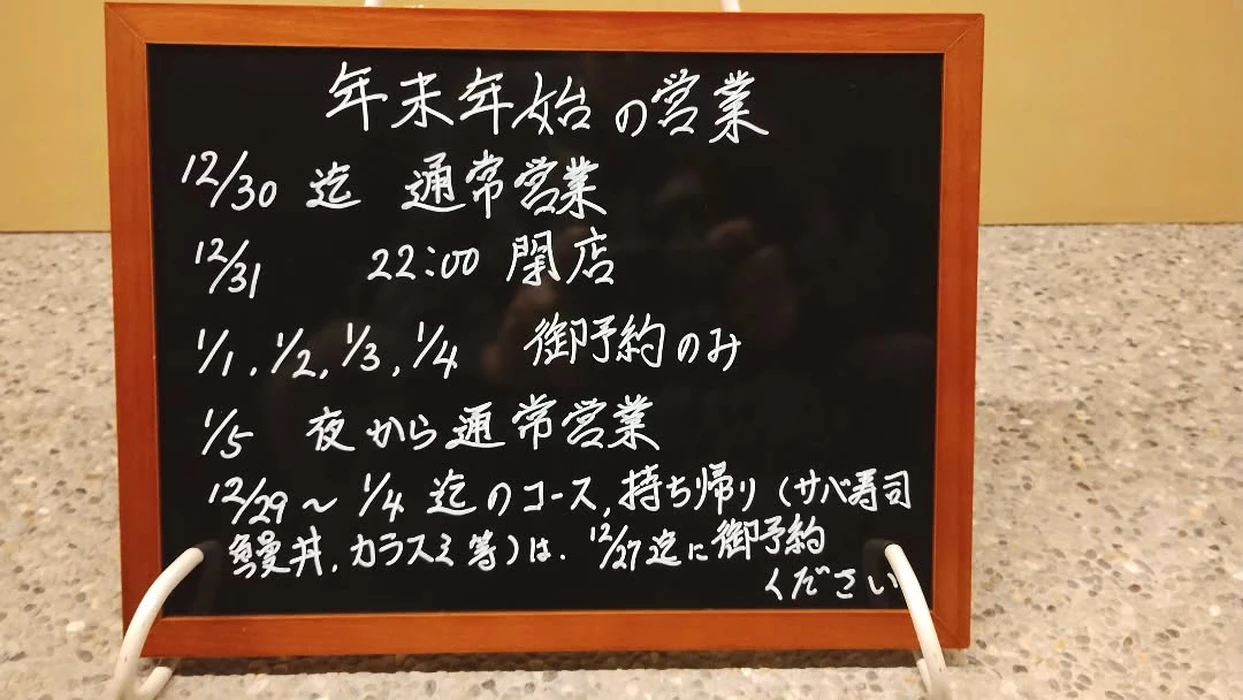 年末年始の営業
12/30 迄 通常営業
12/31 22:00 閉店
1/1, 1/2, 1/3, 1/4 御予約のみ
1/5 夜から通常営業
12/29~1/4 迄のコース, 持ち帰り (サバ寿司
鰻丼, カラスミ等)は. 12/27迄に御予約
ください